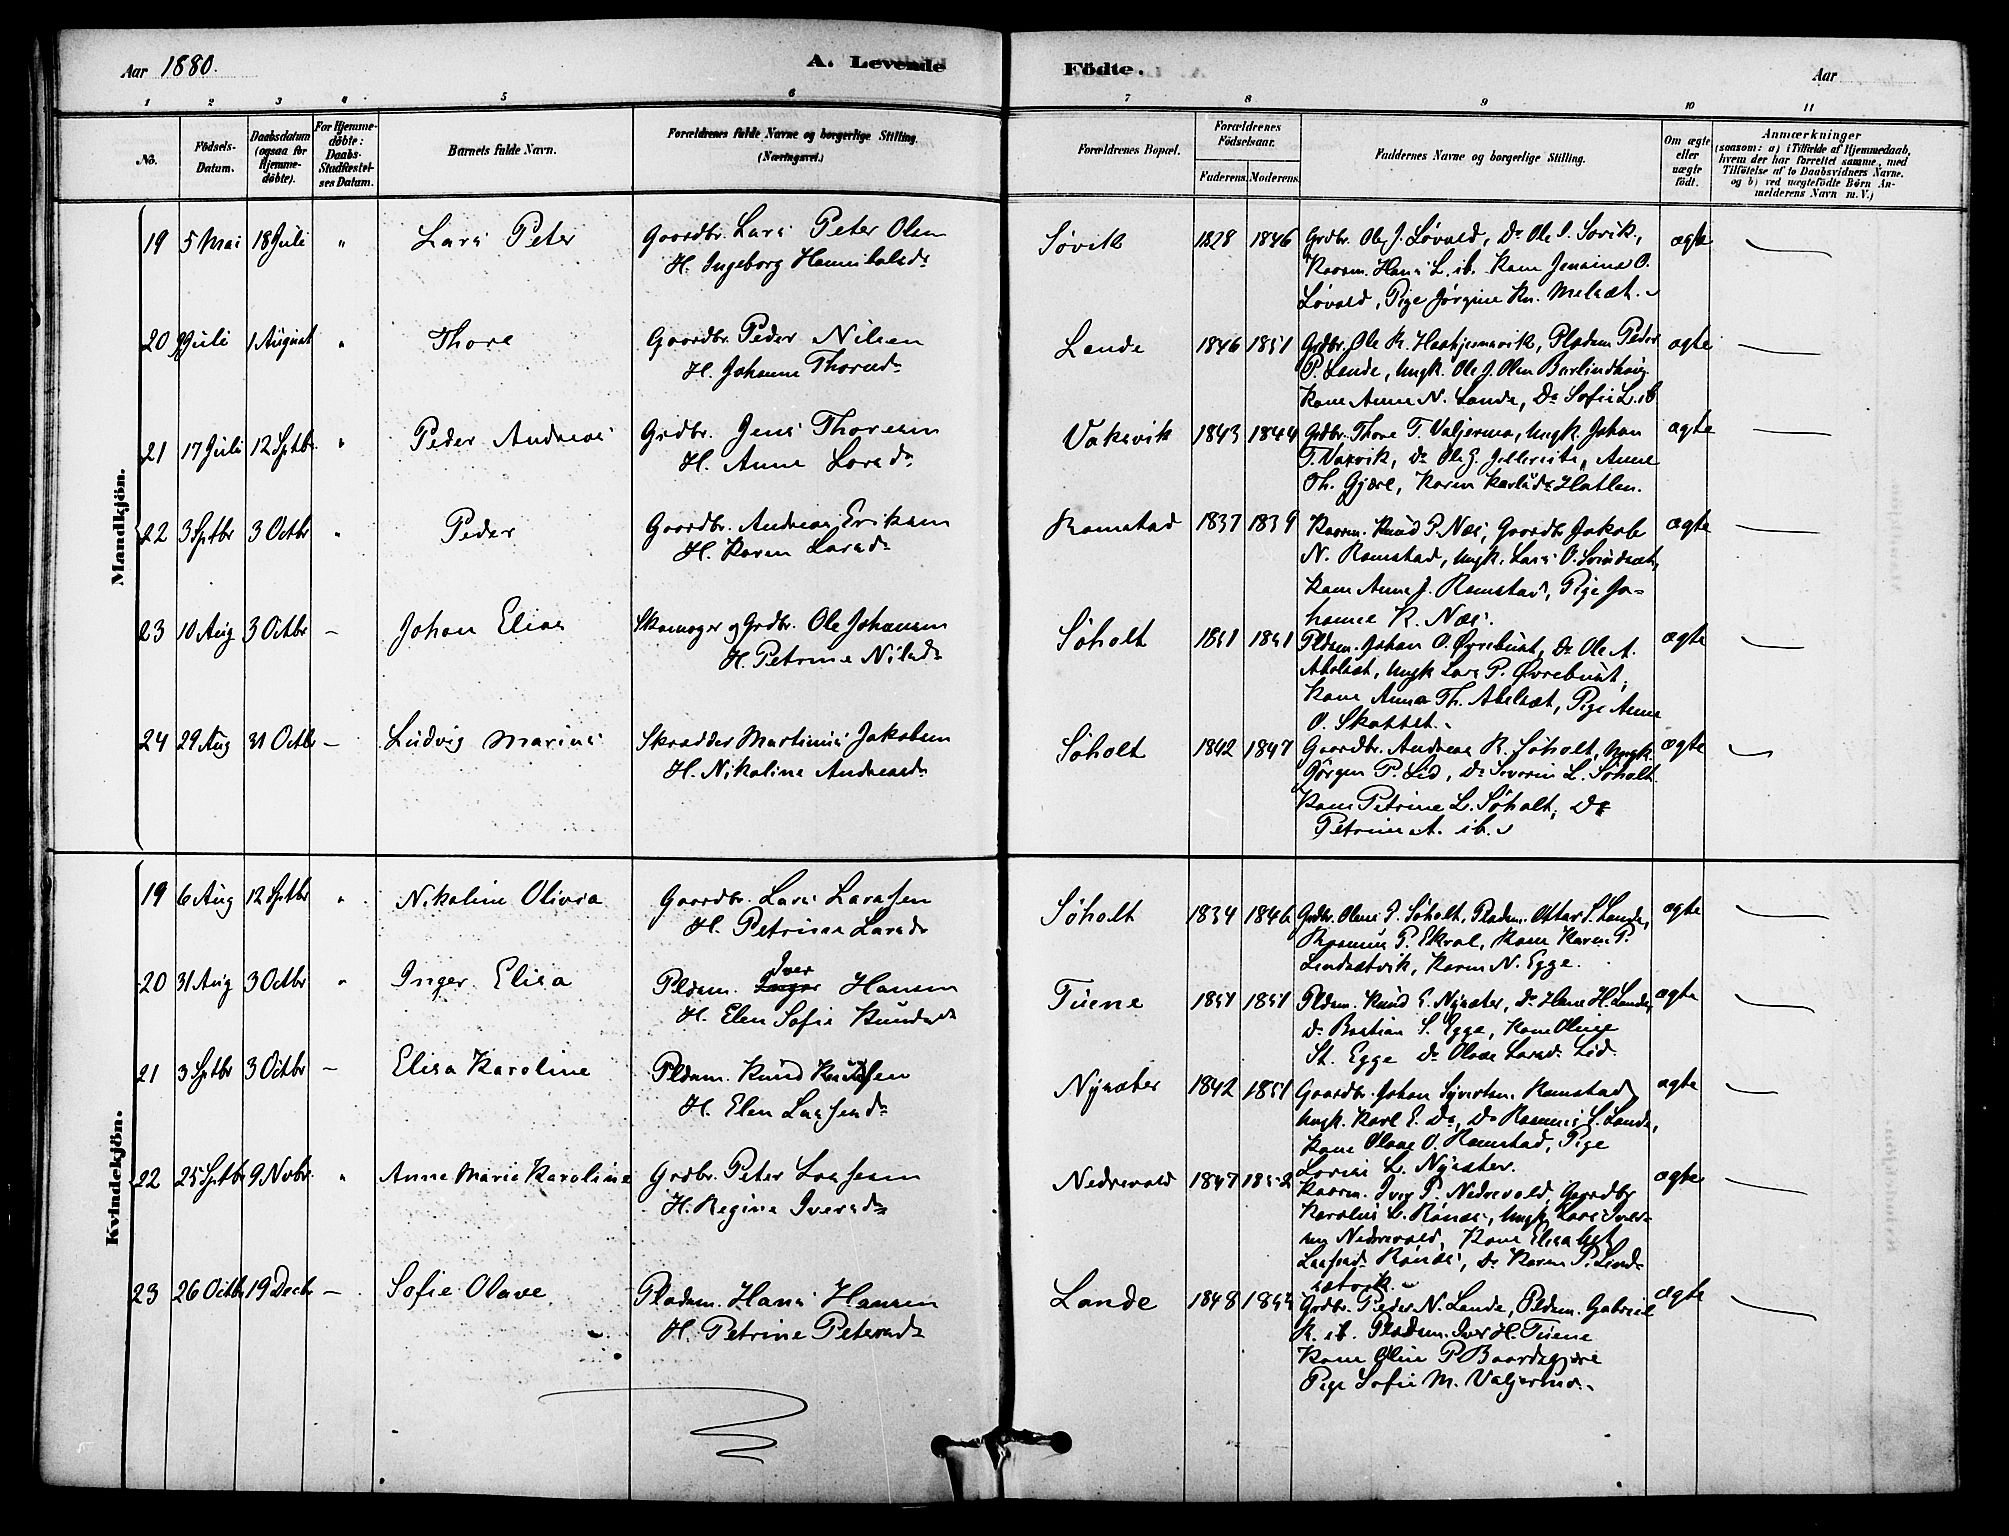 Aar 1880.
A. Levende
Födte.
Aar
1 2 3 4 5 6 7 8 9 10 11
No.
Födsels-
Datum.
Daabsdatum
(ogsaa for
Hjemme-
døbte).
For Hjemme-
døbte:
Daabs-
Stadfæstel-
ses Datum.
Barnets fulde Navn.
Forældrenes fulde Navne og borgerlige Stilling.
(Næringsvei.)
Forældrenes Bopæl.
Forældrenes
Födselsaar.
Faderens. Moderens.
Faddernes Navne og borgerlige Stilling.
Om ægte
eller
uægte
født.
Anmærkninger
(saasom: a) i Tilfælde af Hjemmedaab,
hvem der har forrettet samme, med
Tilföielse af to Daabsvidners Navne.
og b) ved uægtefödte Börn An-
melderens Navn m.V.)
Mandkjön.
19 5 Mai 18 Juli " Lars Peter
Gaardbr. Lars Peter Olsen
H. Ingeborg Hannibalsdr
Søvik 1828 1846
Grdbr. Ole J. Løvold, Do Ole P. Søvik,
Kaarm. Hans L. ib. Kone Jensine O.
Løvold, Pige Jørgine Kn. Melsæt.
ægte
20 9 Juli 1 August " Thore
Gaardbr. Peder Nilsen
H. Johanne Thoresdr
Lande 1846 1851
Grdbr. Ole K. Haahjemsvik, Pladsm Peder
P. Lande, Ungk. Ole J. Olsen Barlindhaug
Kone Anne N. Lande, Do Sofie L. ib
ægte
21 17 Juli 12 Sptbr. " Peder Andreas
Grdbr. Jens Thoresen
H. Anne Larsdr
Vaksvik 1843 1844
Grdbr. Thore T. Valjermo, Ungk. Johan
T. Vaxvik, Do Ole J. Anne
Th. Gjære, Karen Karlsdr Hatlen.
ægte
22 3 Sptbr 3 Octbr " Peder
Gaardbr. Andreas Eriksen
H. Karen Larsdr
Ramstad 1837 1839
Kaarm. Knud P. Næs, Gaardbr Jakob
N. Ramstad, Ungk. Lars O. Svindsæt,
Kone Anne J. Ramstad, Pige Jo-
hanne K. Næs.
ægte
23 10 Aug 3 Octbr – Johan Elias
Skomager og Grdbr. Ole Johansen
H. Petrine Nilsdr
Søholt 1851 1851
Pldsm. Johan O. Øvrebust, Do Ole A.
Abelsæt, Ungk Lars P. Øvrebust,
Kone Anna Th. Abelsæt, Pige Anne
O. Skottet.
ægte
24 29 Aug 31 Octbr – Ludvig Marius
Skrædder Martinus Jakobsen
H. Nikoline Andreasdr
Søholt 1842 1847
Gaardbr. Andreas K. Søholt, Ungk.
Jørgen P. Lid, Do Severin L. Søholt
Kone Petrine L. Søholt, Do
Petrine A. ib.
ægte
Kvindekjön.
19 6 Aug 12 Sptbr " Nikoline Olivia
Gaardbr. Lars Larssen
H. Petrine Larsdr
Søholt 1834 1846
Grdbr. Olaus P. Søholt, Pladsm. Ottar S. Lande,
Rasmus P. Ekrol, Kone Karen P.
Lindsætvik, Karen N. Egge.
ægte
20 31 Aug 3 Octbr " Inger Elisa
Iver
Pldsm. Inger Hansen
H. Elen Sofie Knudsdr
Tuene 1851 1851
Pldsm. Knud E. Nysæter, Do Hans H. Lande,
Do Bastian S. Egge, Kone Oline
St. Egge Do Olave Larsdr Lid.
ægte
21 3 Sptbr 3 Octbr – Elisa Karoline
Pldsm. Knud Knudsen
H. Elen Lassesdr
Nysæter 1842 1851
Gaardbr. Johan Syvertsen Ramstad,
Ungk. Karl E. Do, Do Rasmus E. Lande,
Kone Olave O. Ramstad, Pige
Lovise L. Nysæter.
ægte
22 25 Sptbr 9 Novbr. " Anne Marie Karoline
Grdbr. Peter Lassesen
H. Regine Iversdr
Nedrevold 1847 1852
Kaarm. Iver P. Nedrevold, Gaardbr
Karolus L. Rønæs, Ungk. Lars Ivers-
sen Nedrevold, Kone Elisabet
Lassesdr Rønæs, Do Karen P. Lind-
sætvik.
ægte
23 26 Octbr 19 Decbr – Sofie Olave
Pladsm. Hans Hansen
H. Petrine Petersdr
Lande 1848
Grdbr. Peder N. Lande, Pldsm. Gabriel
K. ib. Pladsm. Iver H. Tuene
Kone Oline P. Baardsgjære
Pige Sofie M. Valjermo.
ægte